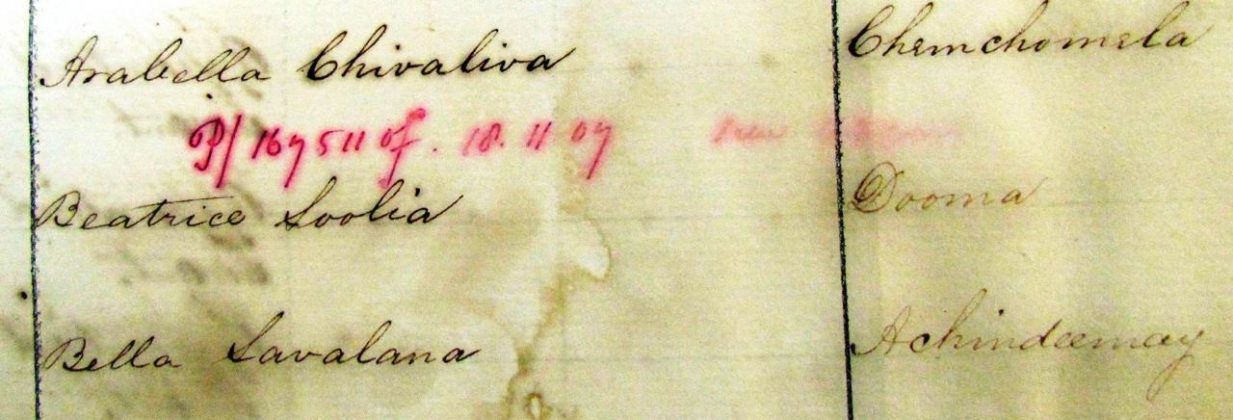 Arabella Chivaliva Chemchomela
P/ 167511 of. 18.11 07
Beatrice Soolia Dooma
Bella Savalana Achindeemay